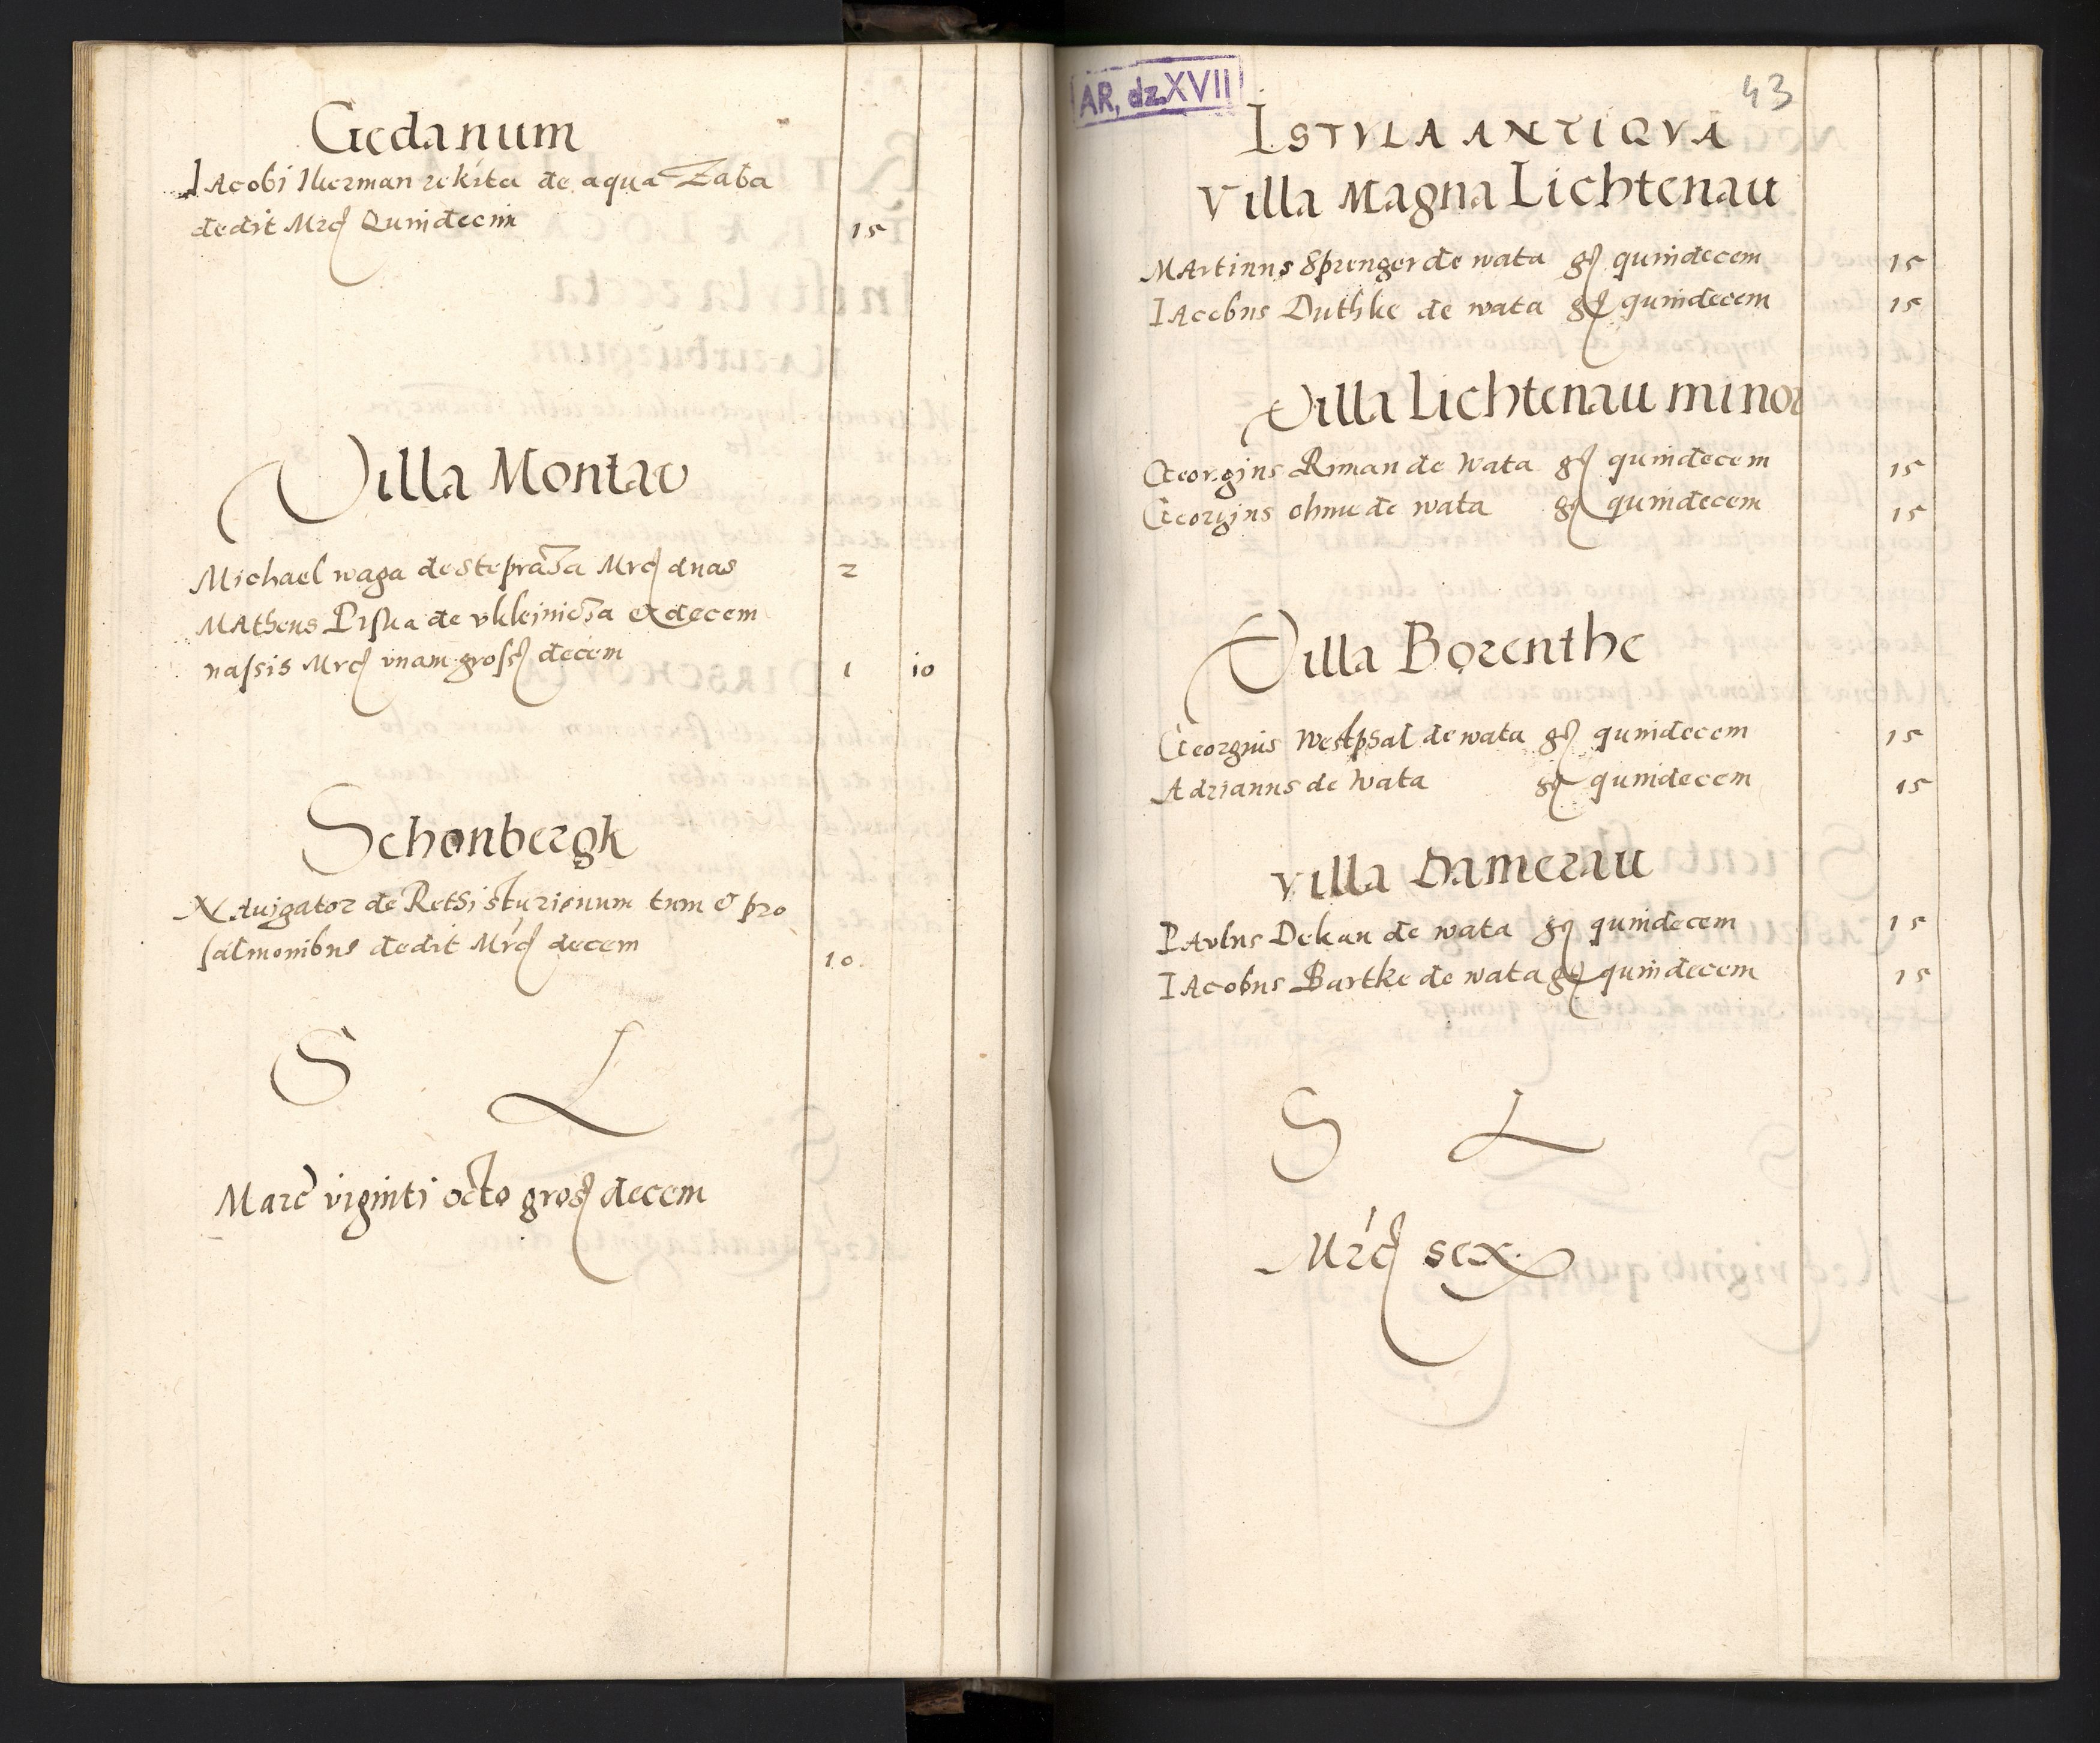 Gedanum
IAcobi Iherman rekita de aqua Zaba
dedit Mrc Quindecim 15
Villa Montav
Michael waga de steprassa Mrc duas 2
MAtheus Piska de vkleiniczа et decem
nassis Mrc vnam gross decem 1 10
Schonbergk
NAuigator de Rethi sturionum tum et pro
salmonibus dedit Mrc decem 10
S L
Marc viginti octo gros decem
AR, dz. XVII
43
ISTVLA ANTIQVA
Villa Magna Lichtenau
MArtinus Sprenger de wata g quindecem 15
IAcobus Duthke de wata g quindecem 15
Villa Lichtenau minor
Georgius Riman de Wata g quindecem 15
Georgius ohnue de wata g quindecem 15
Villa Borenthe
Georgius Westpsal de wata g quindecem 15
Adrianus de Wata g quindecem 15
Villa Damerau
PAvlus Dekan de wata g quindecem 15
IAcobus Bartke de wata g quindecem 15
S L
Mrc sex